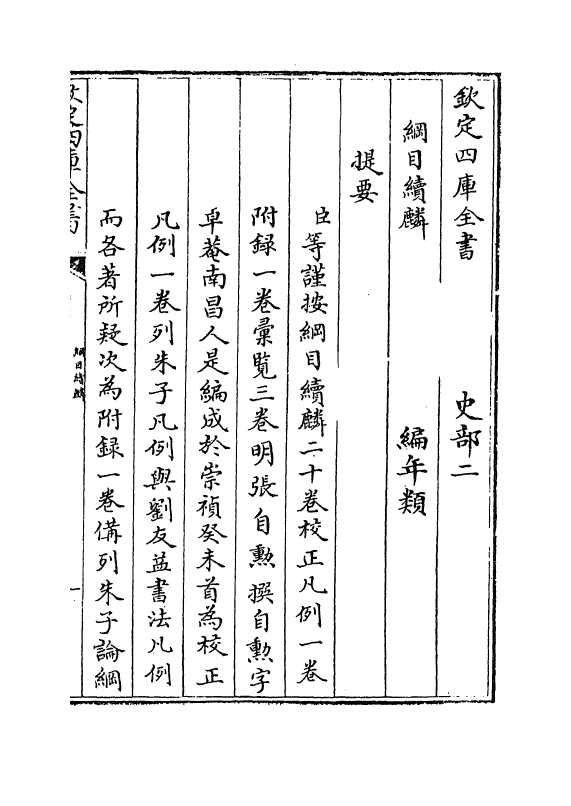 欽定四庫全書
史部二
綱目續麟
編年類
提要
臣等謹按綱目續麟二十卷校正凡例一卷
附録一卷彙覽三卷明張自勲撰自勲字
卓菴南昌人是編成於崇禎癸未首為校正
凡例一卷列朱子凡例與劉友益書法凡例
而各著所疑次為附録一卷備列朱子論綱
欽定四庫全書
綱目續麟
一